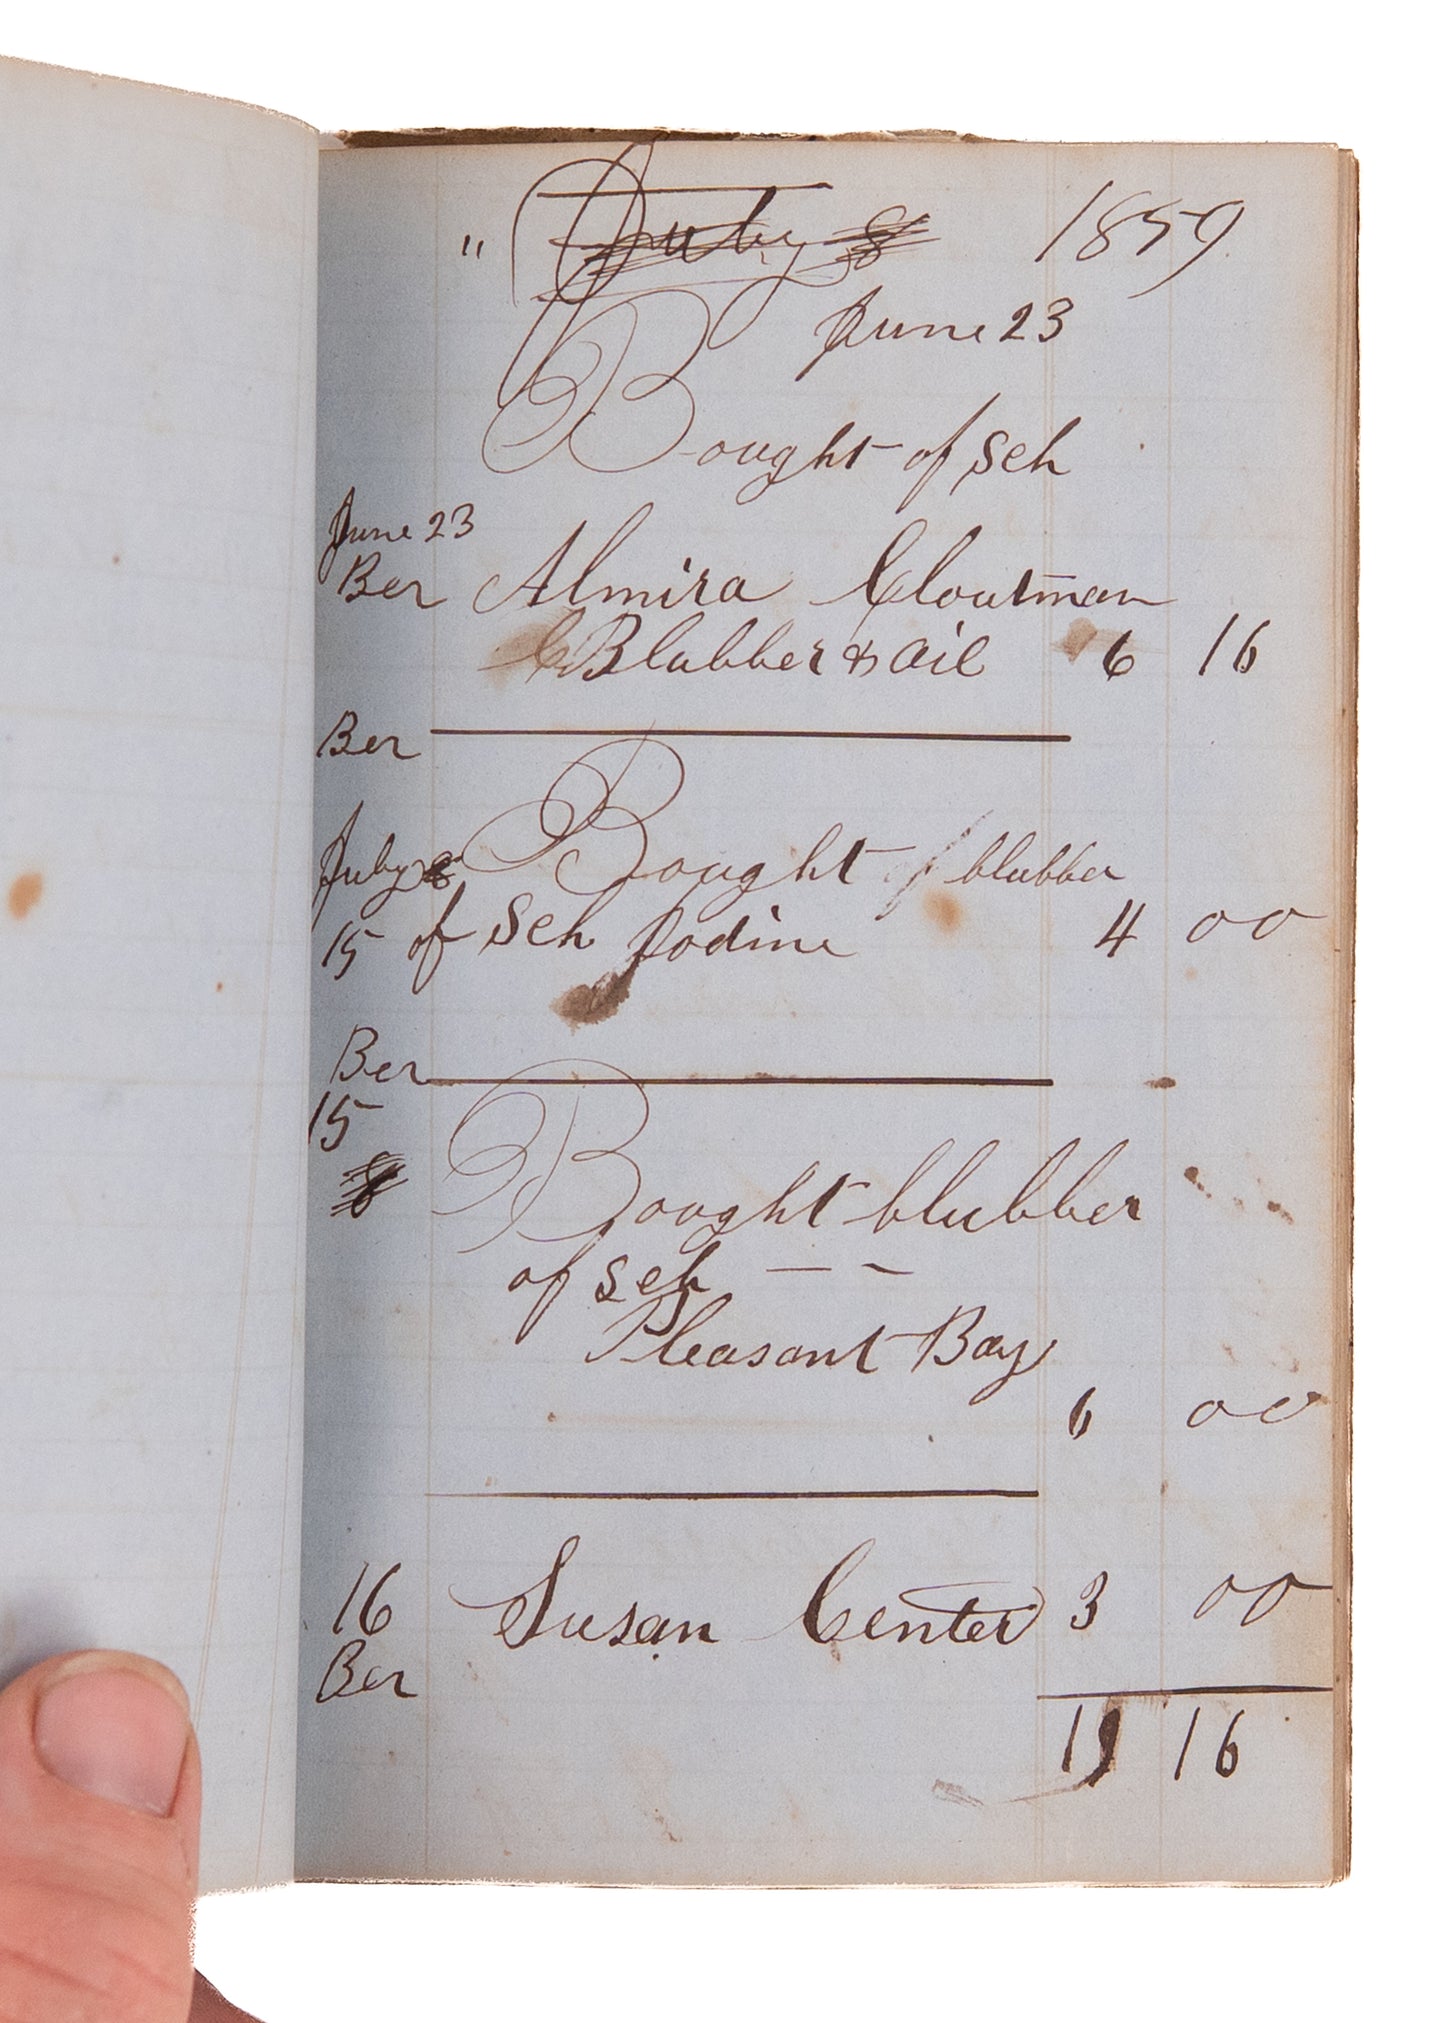 " July 8 1859
June 23
Bought of Sch
June 23
Ber Almira Cloutman
Blubber & Oil 6 16
Ber
July 8 Bought of blubber
15 of Sch Iodine 4 00
Ber
15
8 Bought blubber
of Sch — -
Pleasant Bay
6 00
16 Susan Center 3 00
Ber
19 16